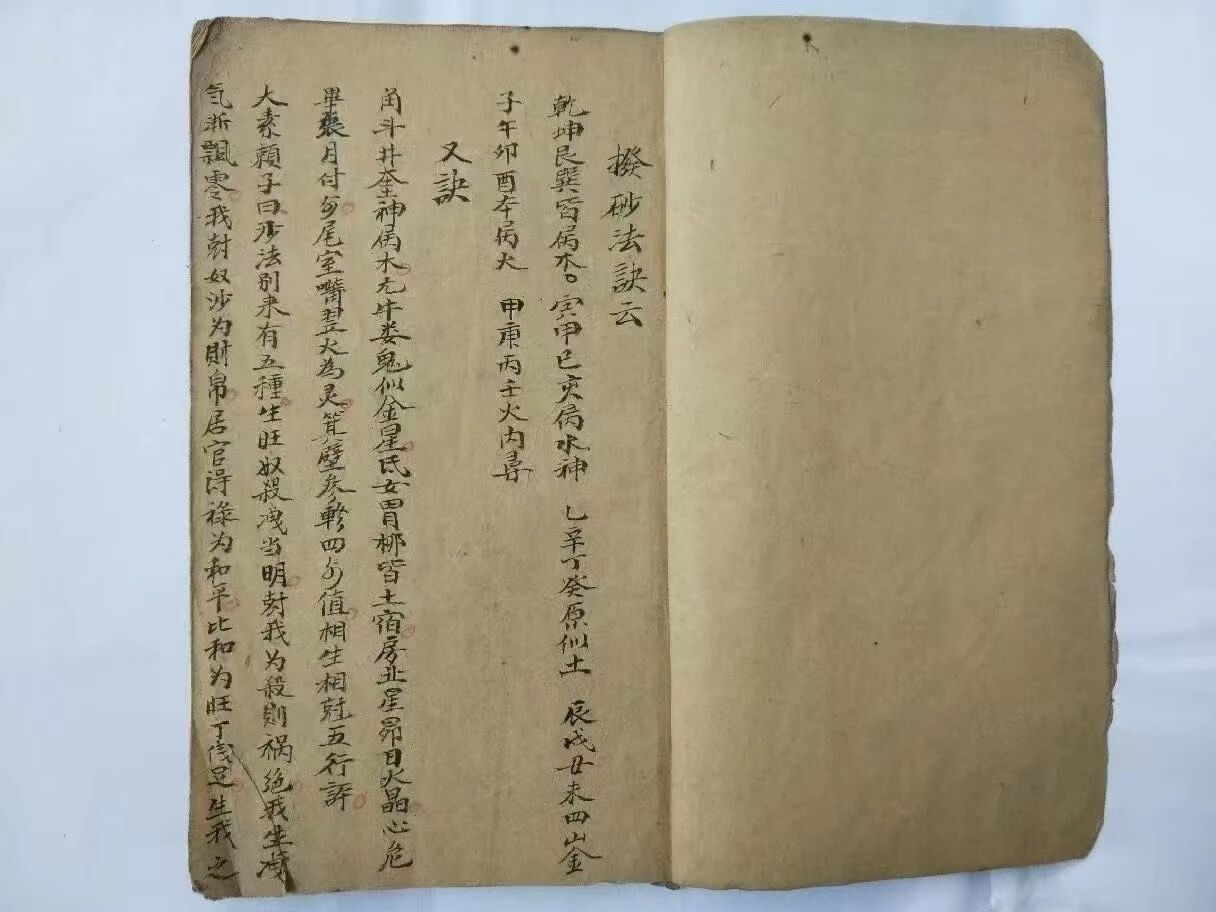 撥砂法訣云
乾坤艮巽皆屬木。寅申巳亥屬水神 乙辛丁癸原似土 辰戌丑未四山金
子午卯酉本屬火 甲庚丙壬火內尋
又訣
角斗井奎神屬木亢牛娄鬼似金星氐女胃柳皆土宿房虚星昴日火晶心危
畢張月付多尾室嘴翌火為灵箕壁参軫四多值相生相尅五行評
大素賴子曰沙法别来有五種生旺奴殺洩当明尅我为殺則禍絶我生洩
気渐飄零我尅奴沙为財帛居官淂禄为和平比和为旺丁 足生我之